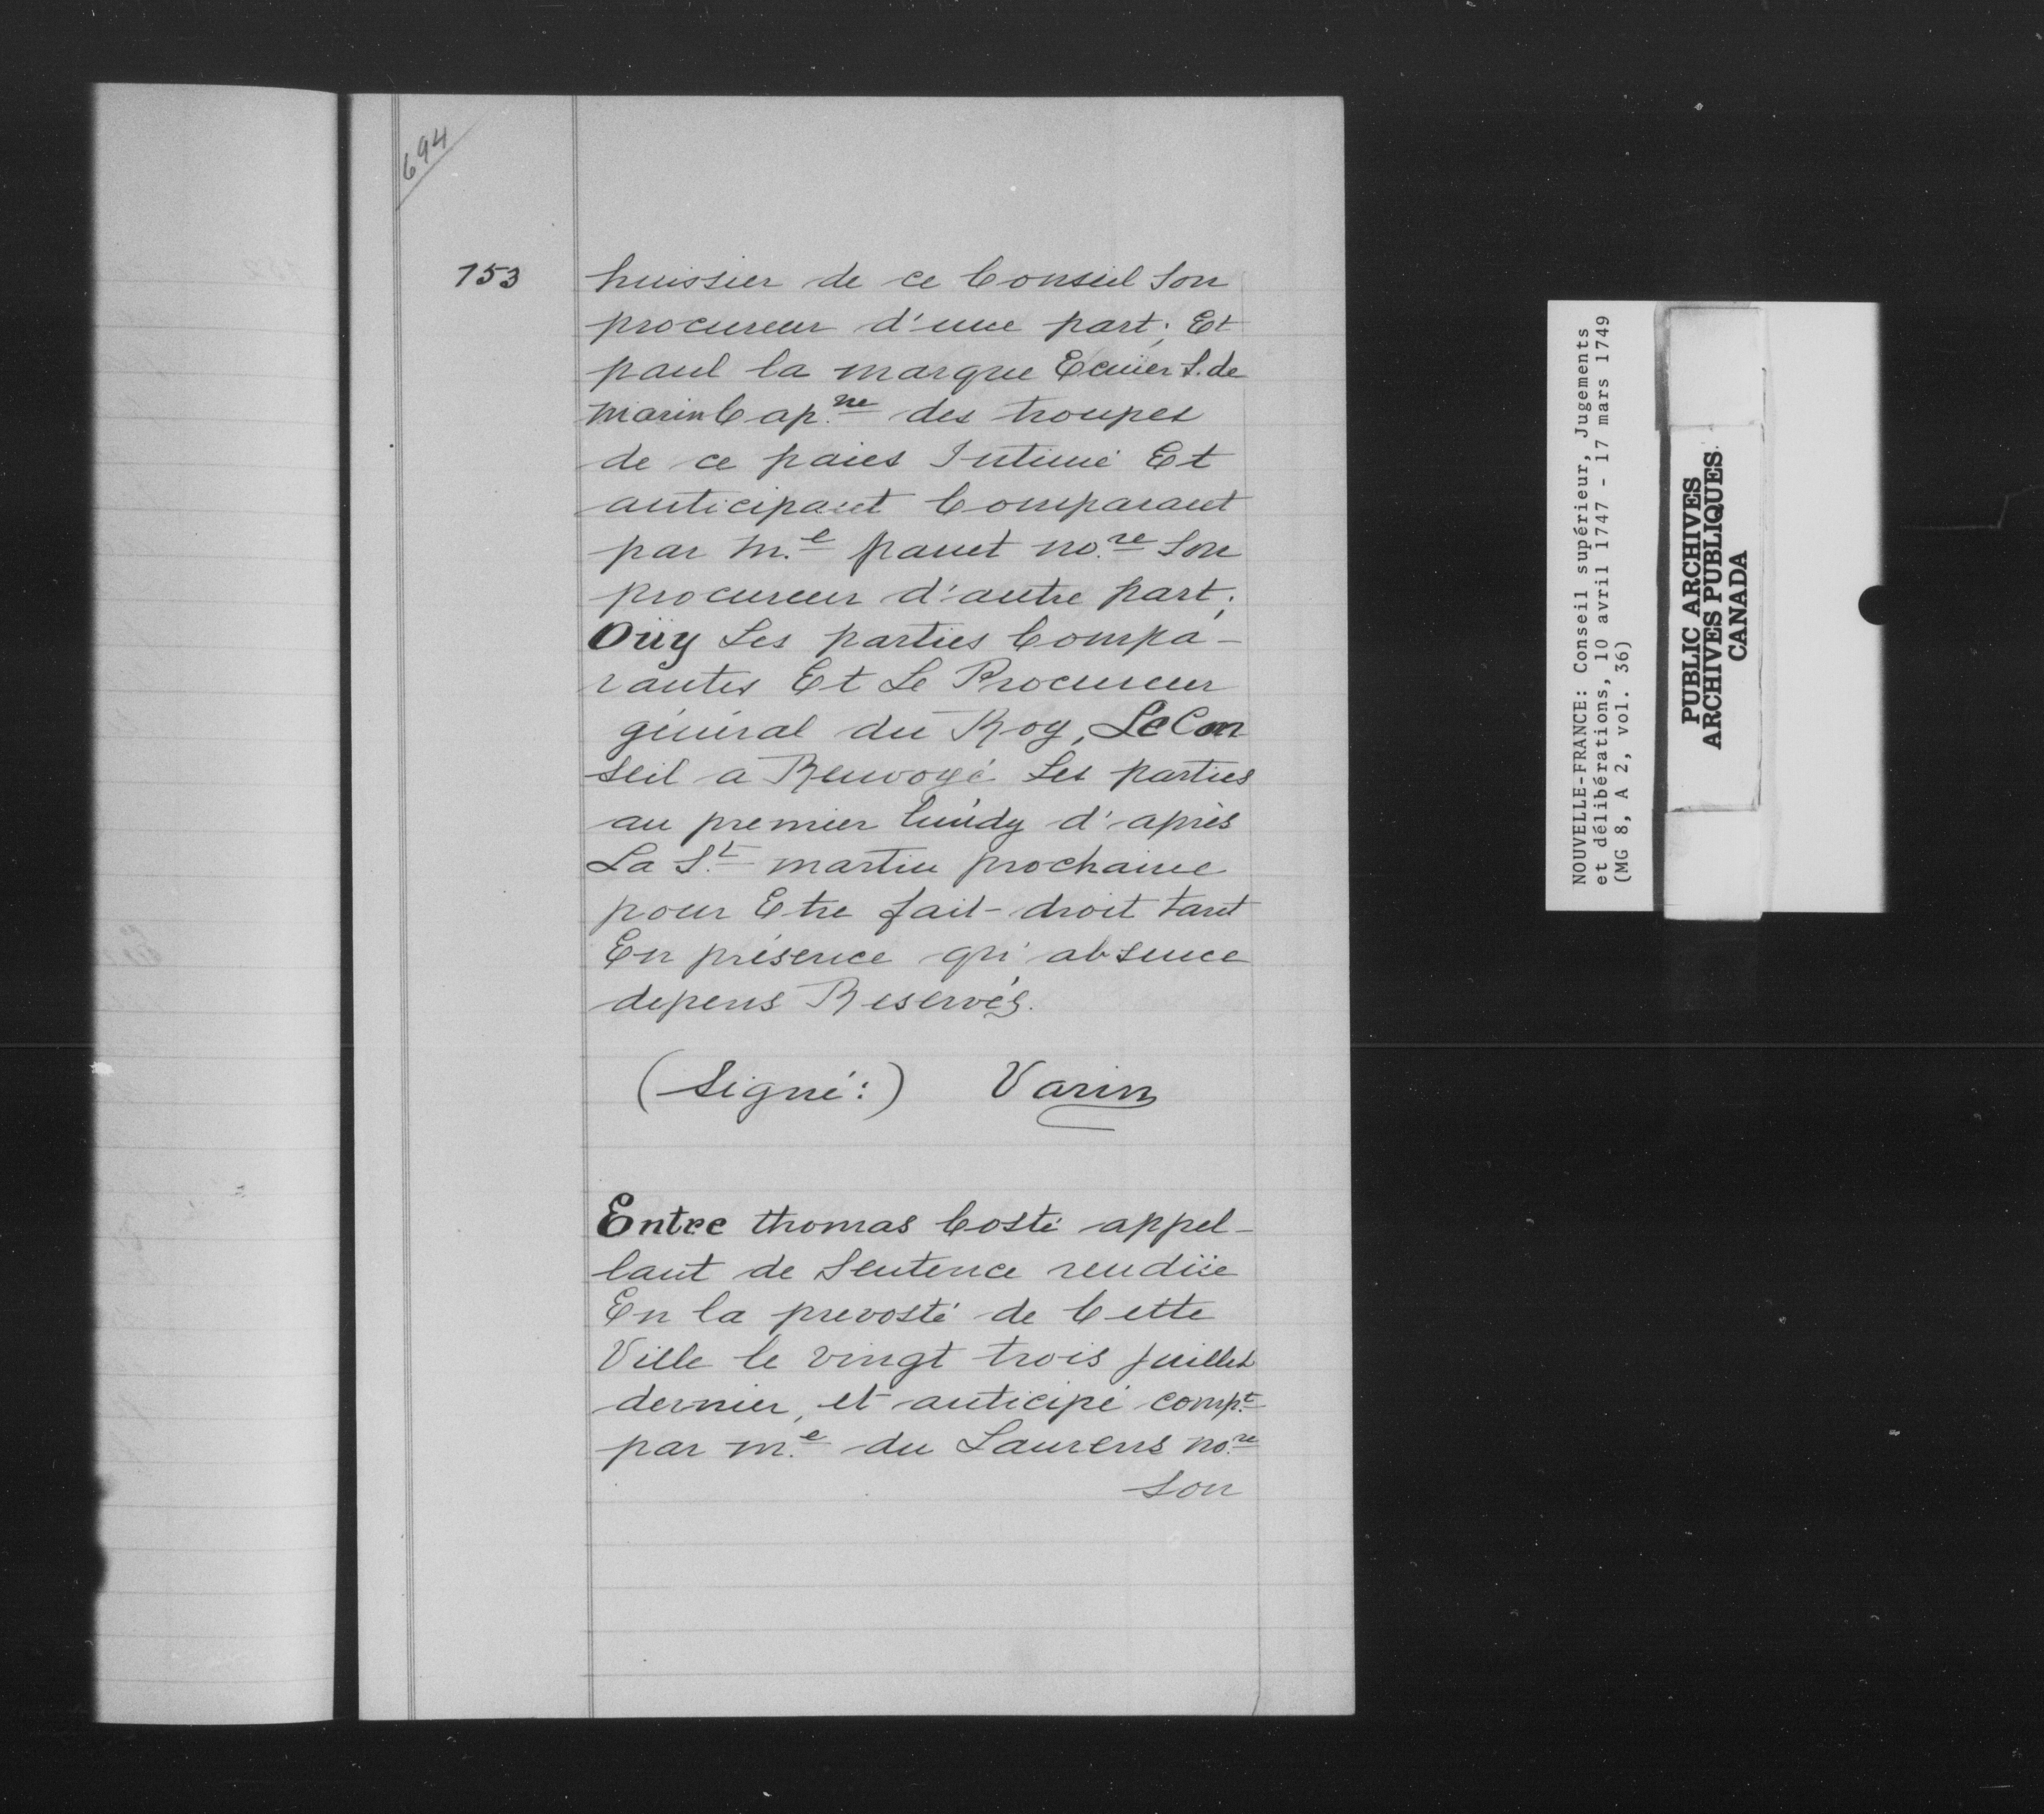 694
153
huissier de ce Conseil Son
procureur d'une part; Et
paul la marque Ecuier S. de
marin Cap.ne des troupes
de ce païs Intimé Et
anticipant Comparant
par m.e panet no.re Son
procureur d'autre part;
Oüy Les parties Compa-
rantes Et Le Procureur
général du Roy, Le Con
seil a Renvoyé Les parties
au premier lundy d'après
La S.t martin prochaine
pour Etre fait droit tant
En présence qu'absence
depens Reservés.
(Signé:) Varin
Entre thomas Costé appel-
lant de Sentence rendüe
En la prevosté de Cette
Ville le vingt trois juillet
dernier, et anticipé comp.t
par m.e du Laurens no.re
Son
NOUVELLE-FRANCE: Conseil supérieur, Jugements
et délibérations, 10 avril 1747 - 17 mars 1749
(MG 8, A 2, vol. 36)
PUBLIC ARCHIVES
ARCHIVES PUBLIQUES
CANADA